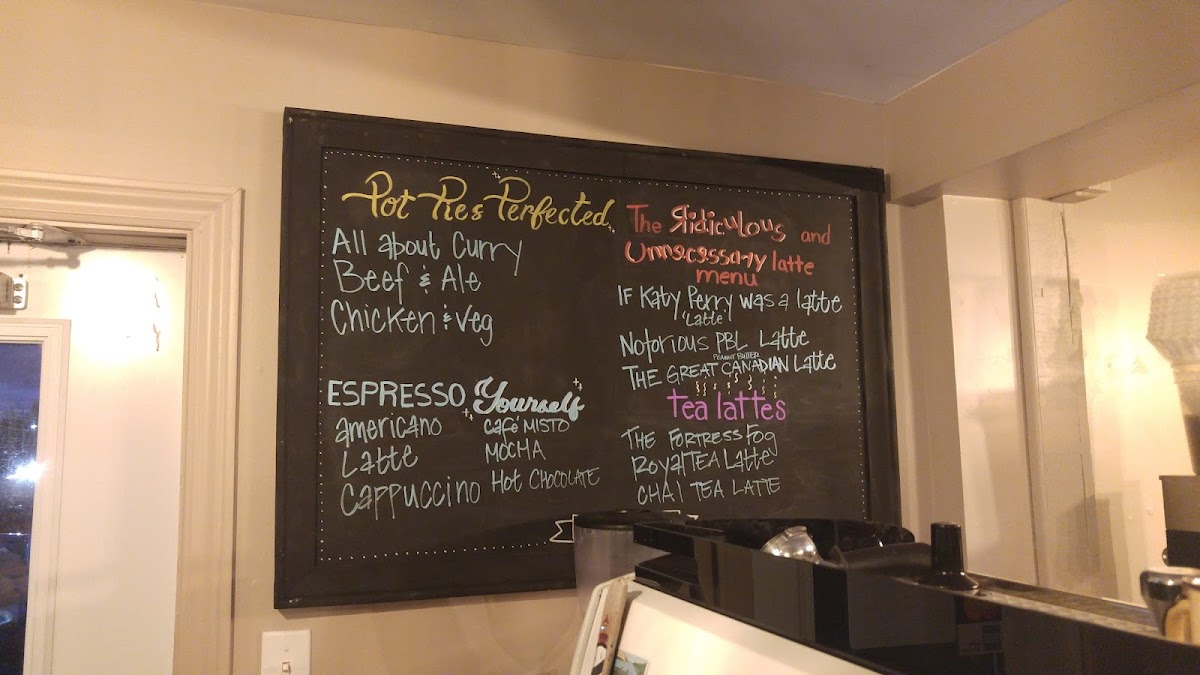 Pot Pies Perfected
All about Curry
Beef & Ale
Chicken & Veg
ESPRESSO Yourself
americano
Latte
Cappuccino
Café MISTO
MOCHA
Hot CHOCOLATE
The Ridiculous and
Unnecessary latte
menu
IF Katy Perry was a latte
'Latte'
Notorious PBL Latte
PEANUT BUTTER
THE GREAT CANADIAN Latte
tea lattes
THE FORTRESS Fog
RoyalTEA Latte
CHAI TEA LATTE